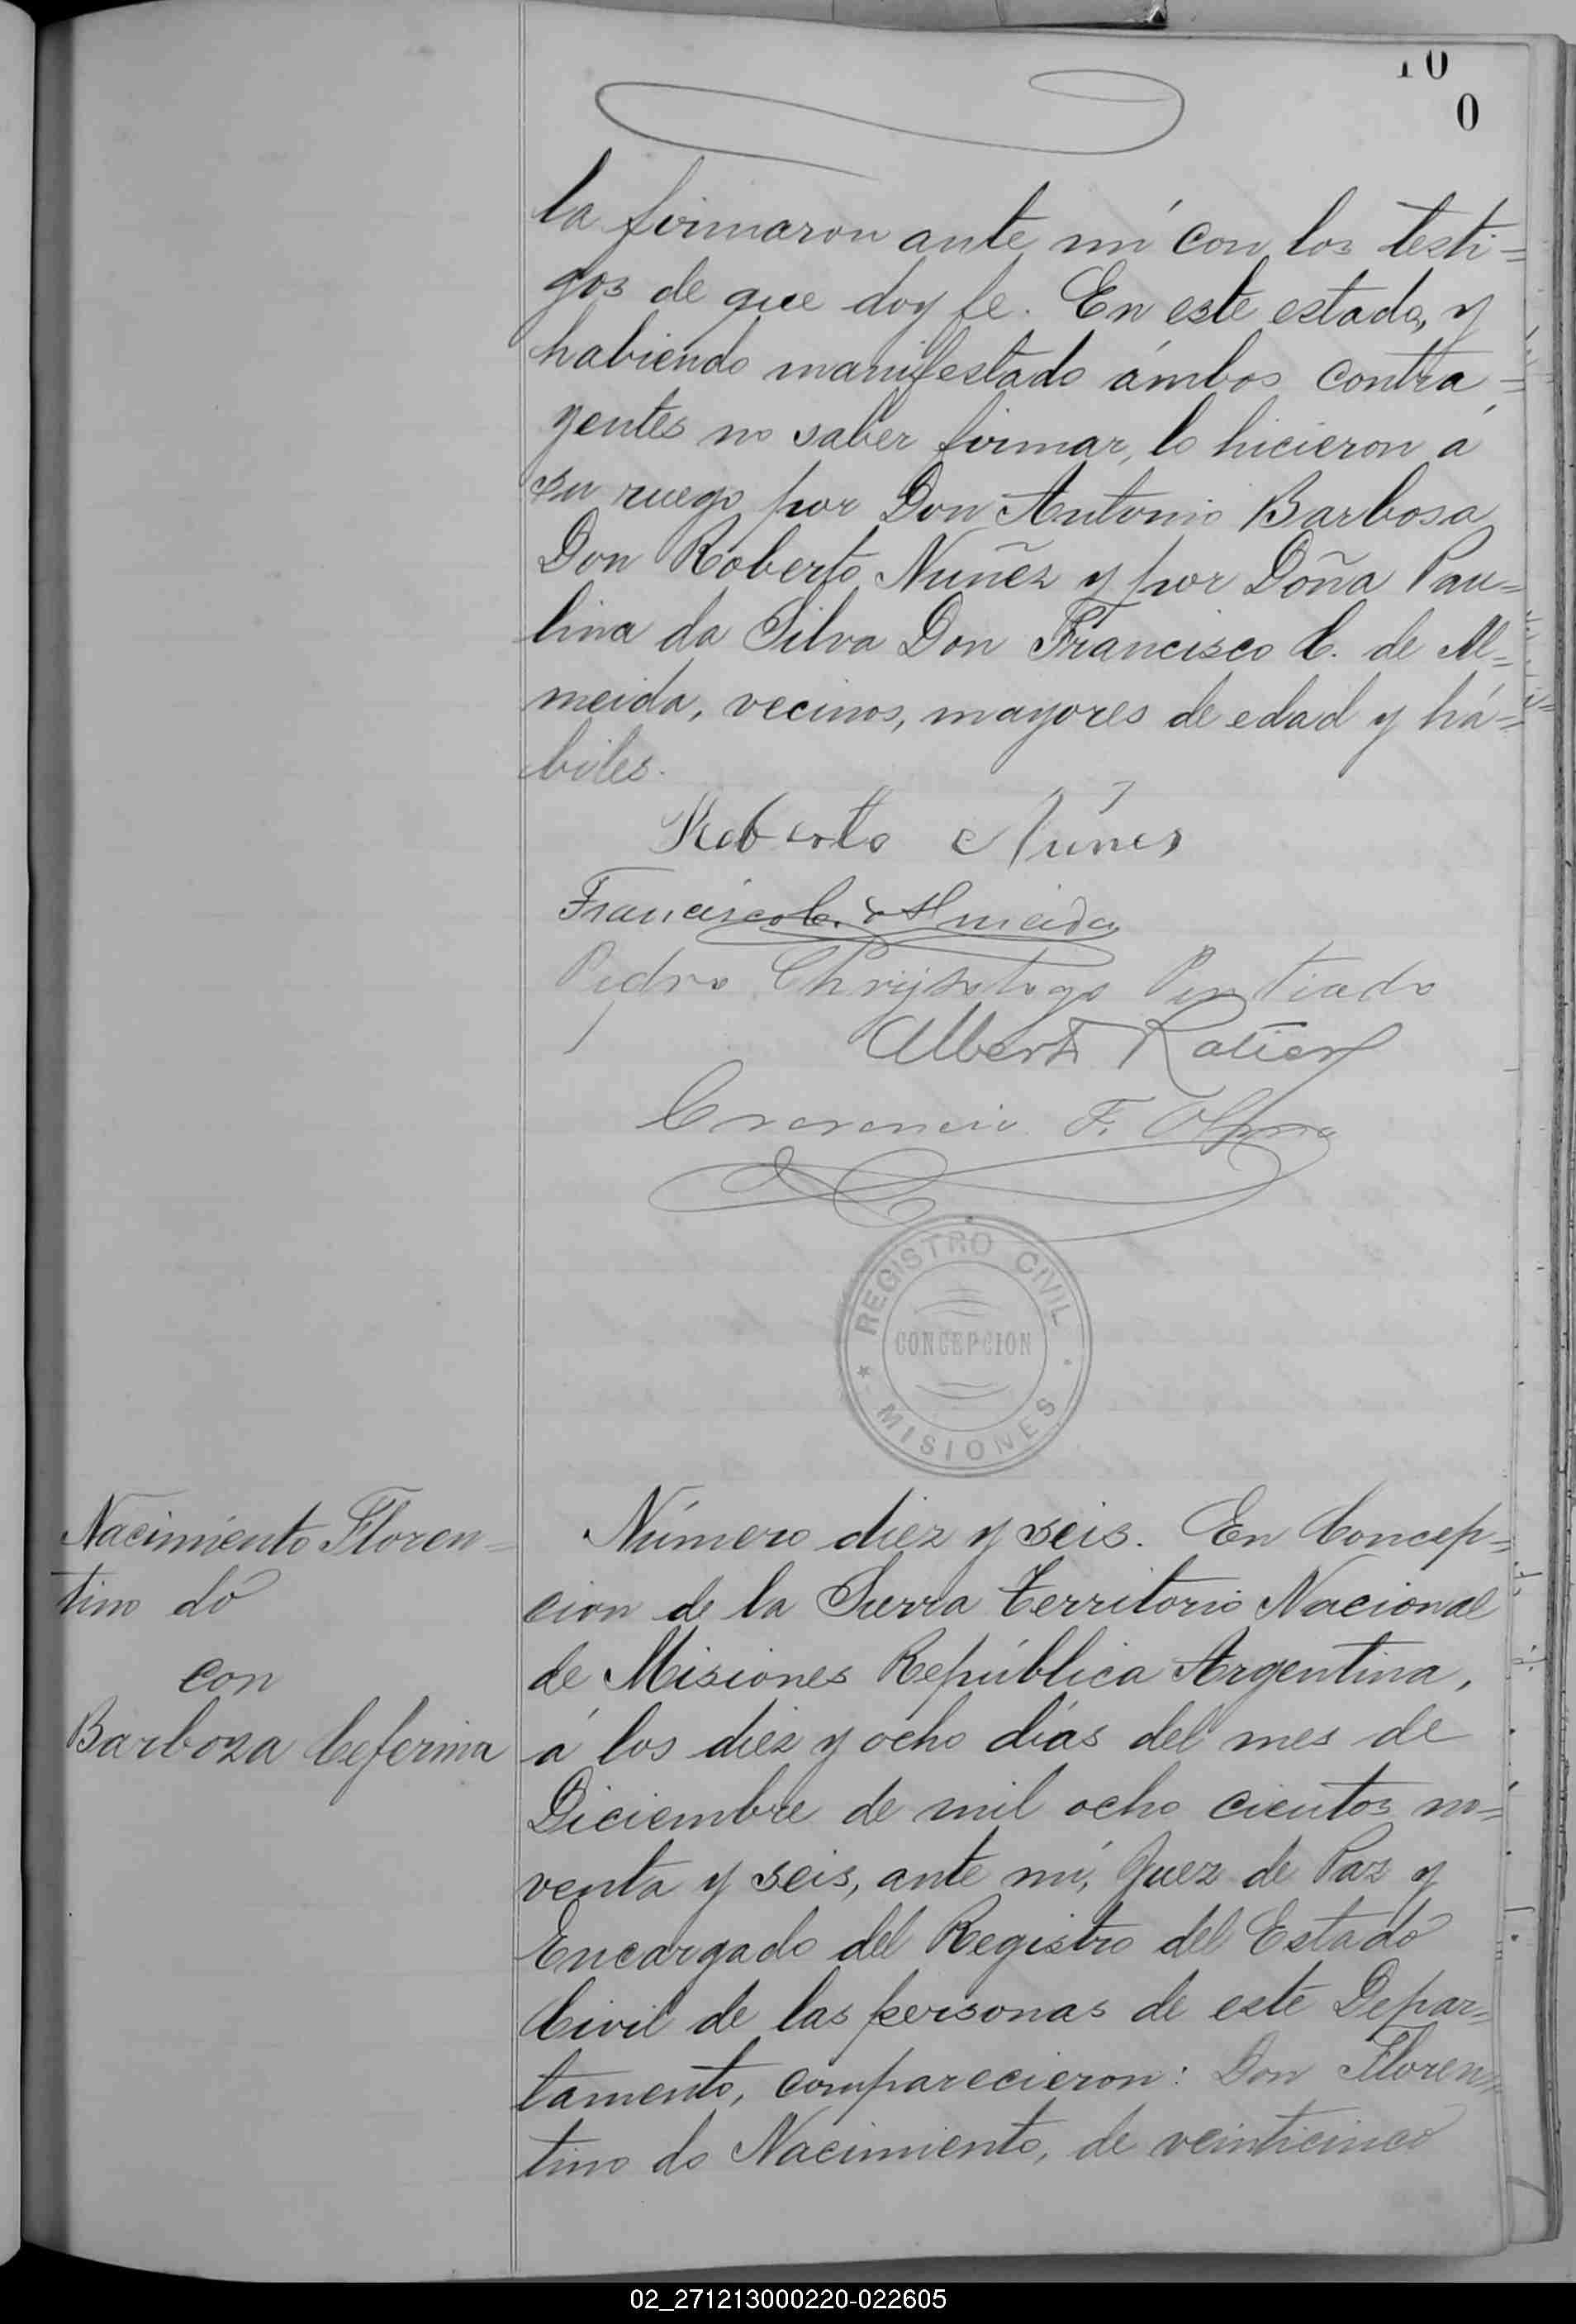 10
0
la firmaron ante mí con los testi=
gos de que doy fe. En este estado, y
habiendo manifestado ámbos contra=
yentes no saber firmar, lo hicieron á
su ruego por Don Antonio Barbosa
Don Roberto Nuñez y por Doña Pau=
lina da Silva Don Francisco C. de Al=
meida, vecinos, mayores de edad y há=
biles.
Roberto Núnes
Francisco C. d Almeida
Pedro Chrijsologo Pentiado
Alberto
F.
REGISTRO CIVIL
CONCEPCION
MISIONES
Nacimiento Floren=
tino do
con
Barboza Ceferina
Número diez y seis. En Concep=
cion de la Sierra Territorio Nacional
de Misiones República Argentina,
á los diez y ocho días del mes de
Diciembre de mil ocho cientos no=
venta y seis, ante mí, Juez de Paz y
Encargado del Registro del Estado
Civil de las personas de este Depar=
tamento, comparecieron: Don Floren=
tino do Nacimiento, de veinticinco
02_271213000220-022605